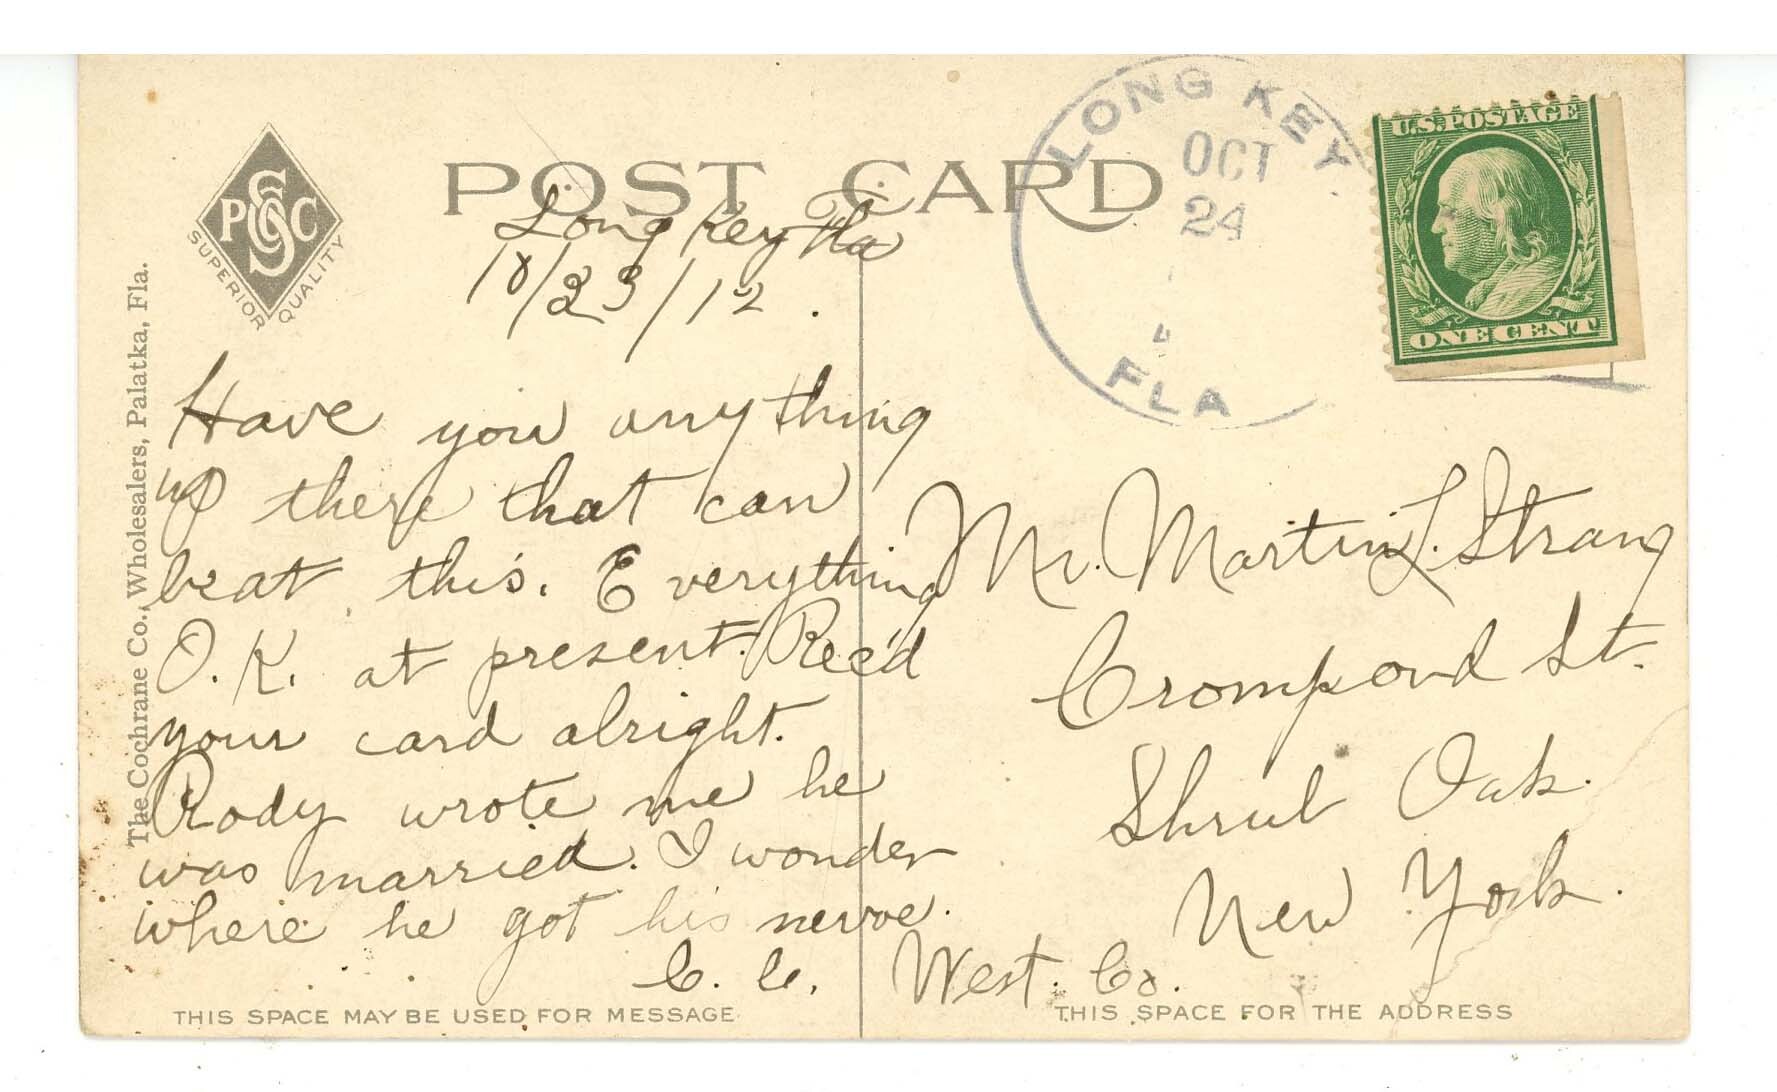 POST CARD
PCSC
SUPERIOR QUALITY
The Cochrane Co., Wholesalers, Palatka, Fla.
LONG KEY
OCT
24
FLA
U.S. POSTAGE
ONE CENT
Long Key Fla
10/23/12.
Have you anything
up there that can
beat this. Everything
O.K. at present. Rec'd
your card alright.
Rody wrote me he
was married. I wonder
where he got his nerve.
C. C.
Mr. Martin L. Strang
Crompond St.
Shrub Oak.
New York.
West. Co.
THIS SPACE MAY BE USED FOR MESSAGE
THIS SPACE FOR THE ADDRESS